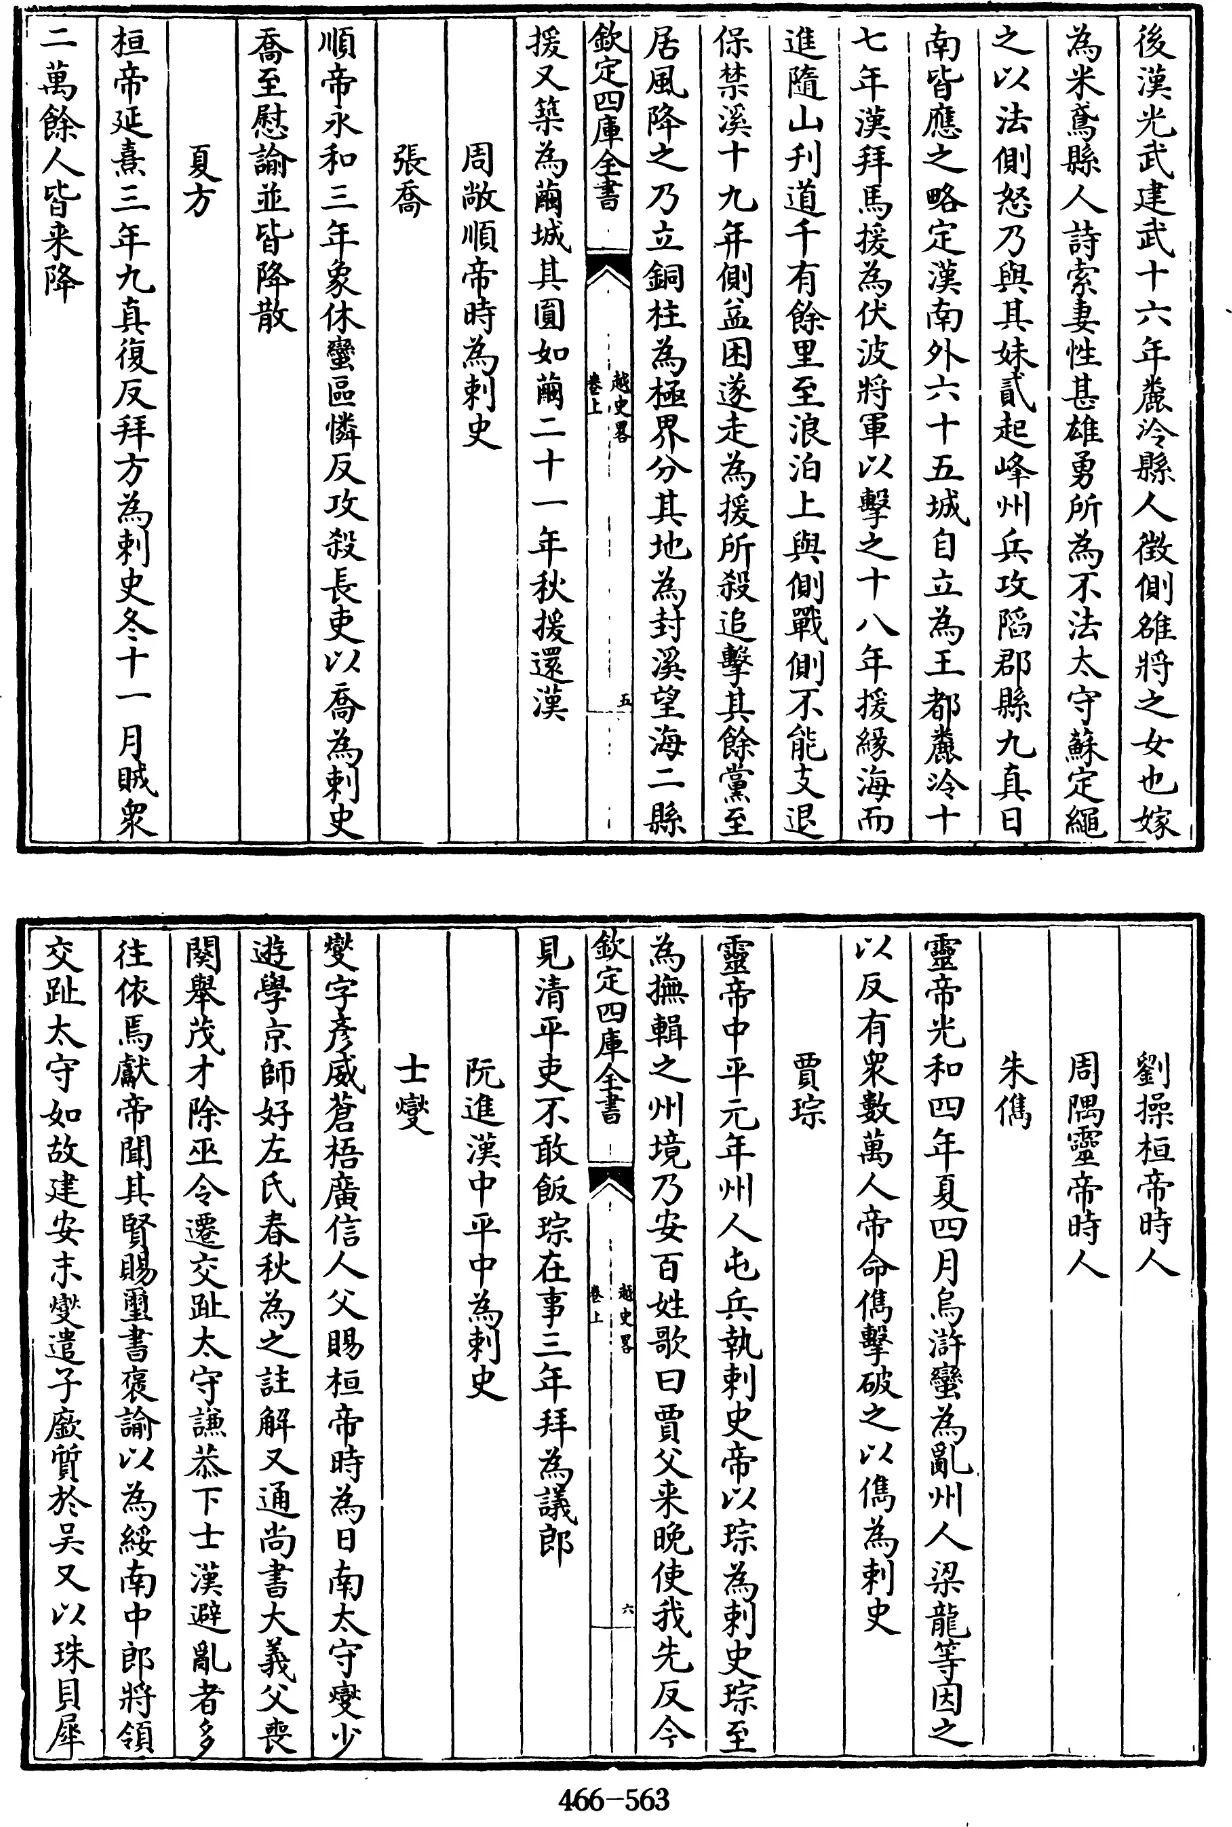 後漢光武建武十六年麊泠縣人徵側雒將之女也嫁
為米鳶縣人詩索妻性甚雄勇所為不法太守蘇定繩
之以法側怒乃與其妹貳起峰州兵攻陷郡縣九真日
南皆應之略定漢南外六十五城自立為王都麊泠十
七年漢拜馬援為伏波將軍以擊之十八年援緣海而
進隨山刋道千有餘里至浪泊上與側戰側不能支退
保禁溪十九年側益困遂走為援所殺追擊其餘黨至
居風降之乃立銅柱為極界分其地為封溪望海二縣
欽定四庫全書
越史畧
卷上
五
援又築為繭城其圓如繭二十一年秋援還漢
周敞順帝時為刺史
張喬
順帝永和三年象休蠻區憐反攻殺長吏以喬為刺史
喬至慰諭並皆降散
夏方
桓帝延熹三年九真復反拜方為刺史冬十一月賊衆
二萬餘人皆来降
劉操桓帝時人
周隅靈帝時人
朱儁
靈帝光和四年夏四月烏滸蠻為亂州人梁龍等因之
以反有衆數萬人帝命儁擊破之以儁為刺史
賈琮
靈帝中平元年州人屯兵執刺史帝以琮為刺史琮至
為撫輯之州境乃安百姓歌曰賈父来晚使我先反今
欽定四庫全書
越史畧
卷上
六
見清平吏不敢飯琮在事三年拜為議郎
阮進漢中平中為刺史
士燮
燮字彦威蒼梧廣信人父賜桓帝時為日南太守燮少
遊學京師好左氏春秋為之註解又通尚書大義父喪
闋舉茂才除巫令遷交趾太守謙恭下士漢避亂者多
往依焉獻帝聞其賢賜璽書褒諭以為綏南中郎將領
交趾太守如故建安末燮遣子廞質於吴又以珠貝犀
466-563